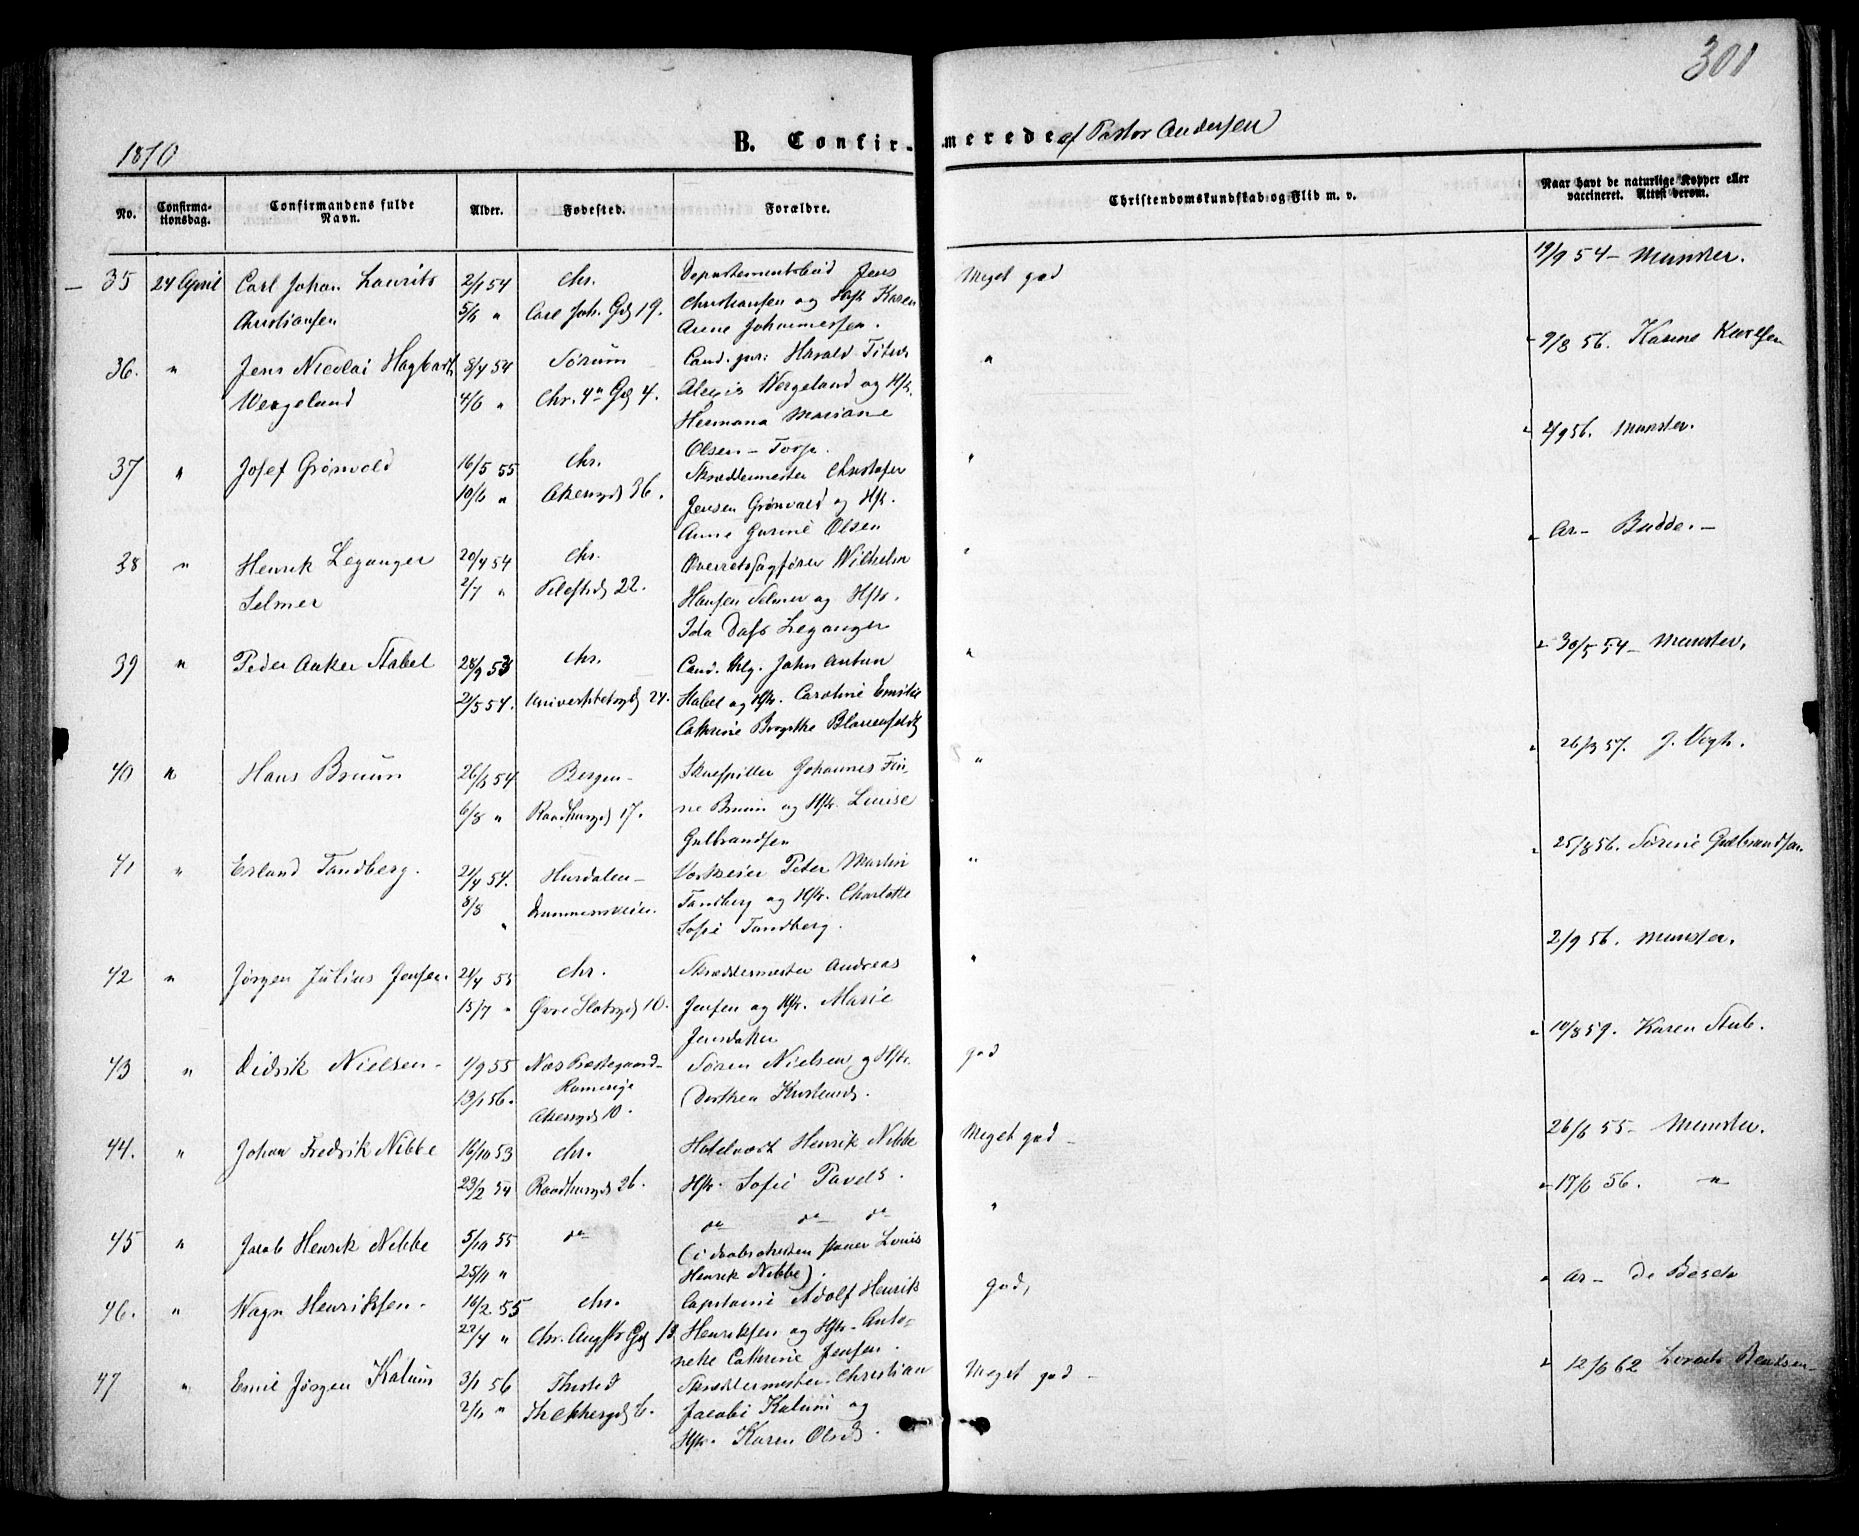 301
1870
B. Confirmerede af Pastor Andersen
No. Confirmationsdag. Confirmandens fulde Navn. Alder. Fødested. Forældre. Christendomskundskab og Flid m. v. Naar havt de naturlige Kopper eller vaccineret. Attest derom.
35 24 April Carl Johan Laurits 2/1 54 Chr. Departementsbud Jens Meget god 19/9 54 - Munster.
Christiansen 5/6 " Carl Joh. Gd 19. Christiansen og Hst. Karen
Arene Johannessen.
36. " Jens Nicolai Hagbart 8/4 54 Sørum Cand. jur: Harald Titus " 9/8 56.
Wergeland 4/6 " Chr. 4de Gd 4. Alexis Wergeland og Hst.
Hermana Mariane
Olsen - Torp.
37 " Josef Grønvold 16/5 55 Chr. Skræddermester Christofer " 2/9 56. Munster.
10/6 " Akersgd 36. Jensen Grønvold og Hst.
Anne Gurine Olsen
38 " Henrik Leganger 20/4 54 Chr. Overretssagfører Wilhelm " Ar - Budde. -
Selmer 2/7 " Pilestrd 22. Hansen Selmer og Hstr.
Ida Dass Leganger
39 " Peder Anker Stabel 28/9 53 Chr. Cand. John Anton " 30/5 54 - Munster.
21/5 54. Universitetsgd 24. Stabel og Hst. Caroline Emilie
Cathrine Birgitte
40 " Hans Bruun 26/6 54 Bergen - Skuespiller Johannes Fin- " 26/3 57. J. Vogt.
6/8 " Raadhusgd 17. ne Bruun og Hstr. Louise
Gulbrandsen
41 " Erland Tandberg. 21/4 54. Hurdalen - Peter Martin " 25/8 56. Sørine Gulbrandsen
8/8 " Drammensveien. Tandberg og Hstr. Charlotte
Sofie Tandberg.
42 " Jørgen Julius Jensen. 21/4 55 Chr. Skræddermester Andreas " 2/9 56. Munster.
15/7 " Øvre Slotsgd 10. Jensen og Hstr. Marie
43 " Didrik Nielsen - 1/9 55 Næs Præstegaard - Søren Nielsen og Hstr. god 10/8 59. Karen Stub.
13/1 56. Romerige Dorthea
Akersgd 10.
44. " Johan Fredrik Nibbe 16/10 53 Chr. Hotelvært Henrik Nibbe Meget god - 26/6 55 - Munster.
23/2 54 Raadhusgd 26. Hstr. Sofie Pavels.
45 " Jacob Henrik Nibbe 5/10 55 do do do do " 17/6 56. "
25/11 " (i Daabsattesten staaer Louis
Henrik Nibbe).
46. " Wagn Henriksen. 16/2 55 Chr. Capitaine Adolf Henrik god, Ar - De Besche
22/4 " Chr. Augstr Gd 13 Henriksen og Hstr. Anto-
nette Cathrine Jensen.
47 " Emil Jørgen Kalum 3/1 56 Thisted Skræddermester Christian Meget god - 12/6 62
2/6 " Jacobi Kalum og
Hstr. Karen Olsd.